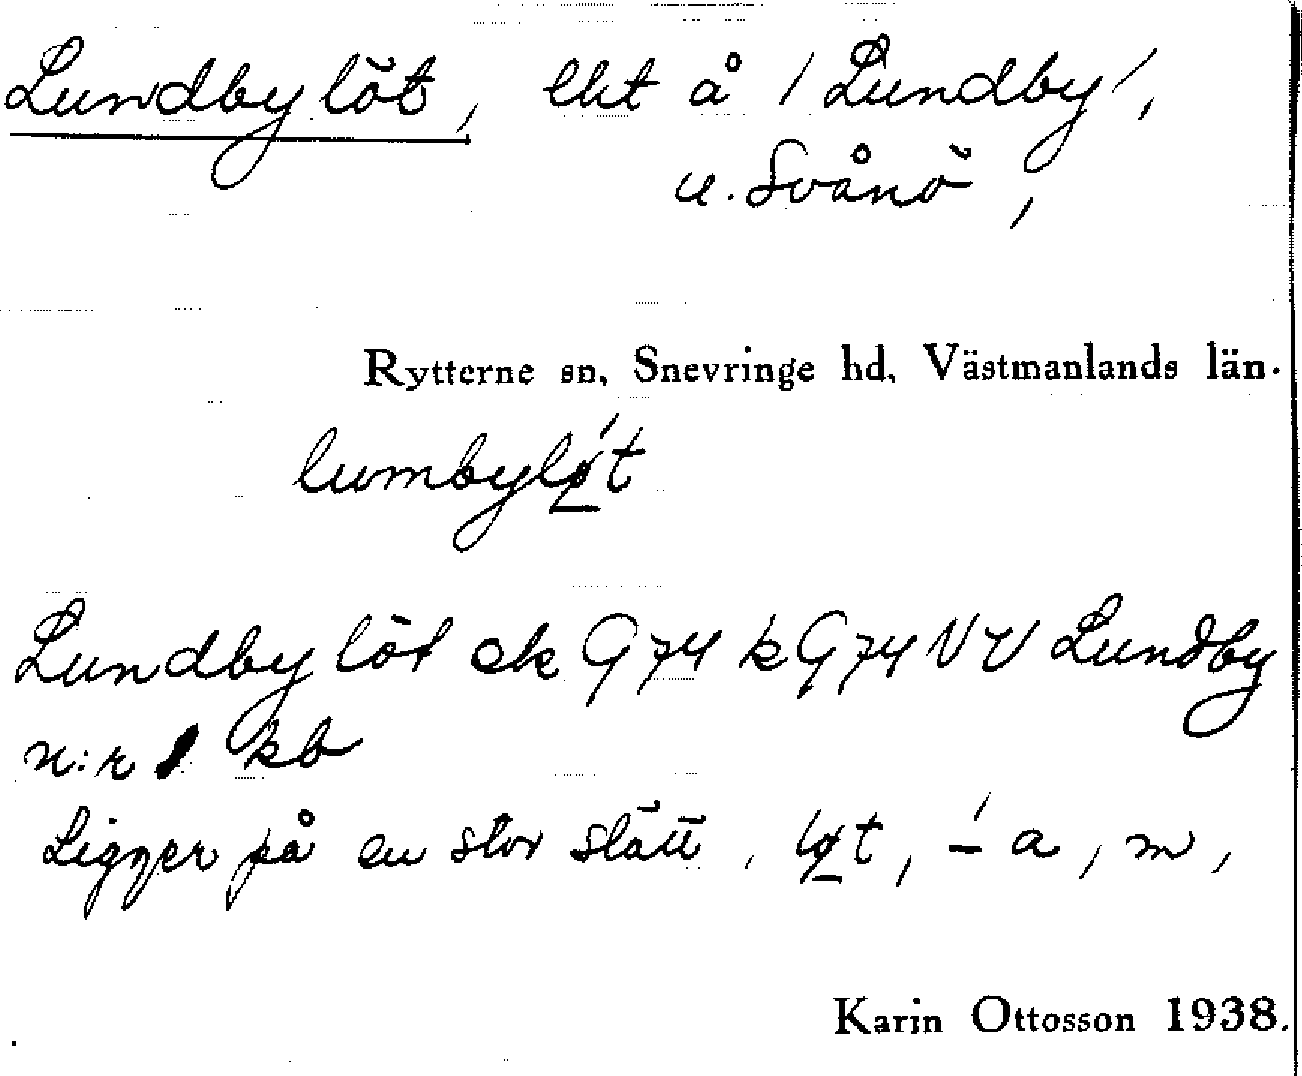 Lundby löt, lht å / Lundby /,
u. Svånö,
Rytterne sn, Snevringe hd, Västmanlands län.
lumbylǿ̱t
Lundby löt ek G 74 k G 74 VV Lundby
n:r 1 kb
Ligger på en stor slätt, lø̱t, ´– a, m,
Karin Ottosson 1938.